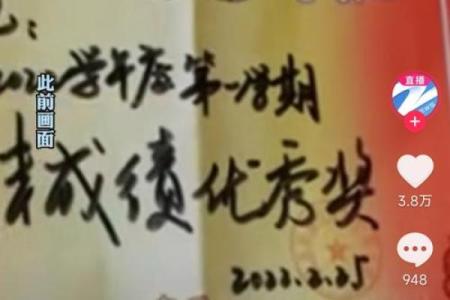 学年度第一学期
成绩优秀奖
2022.2.25
此前画面
直播
3.8万
948